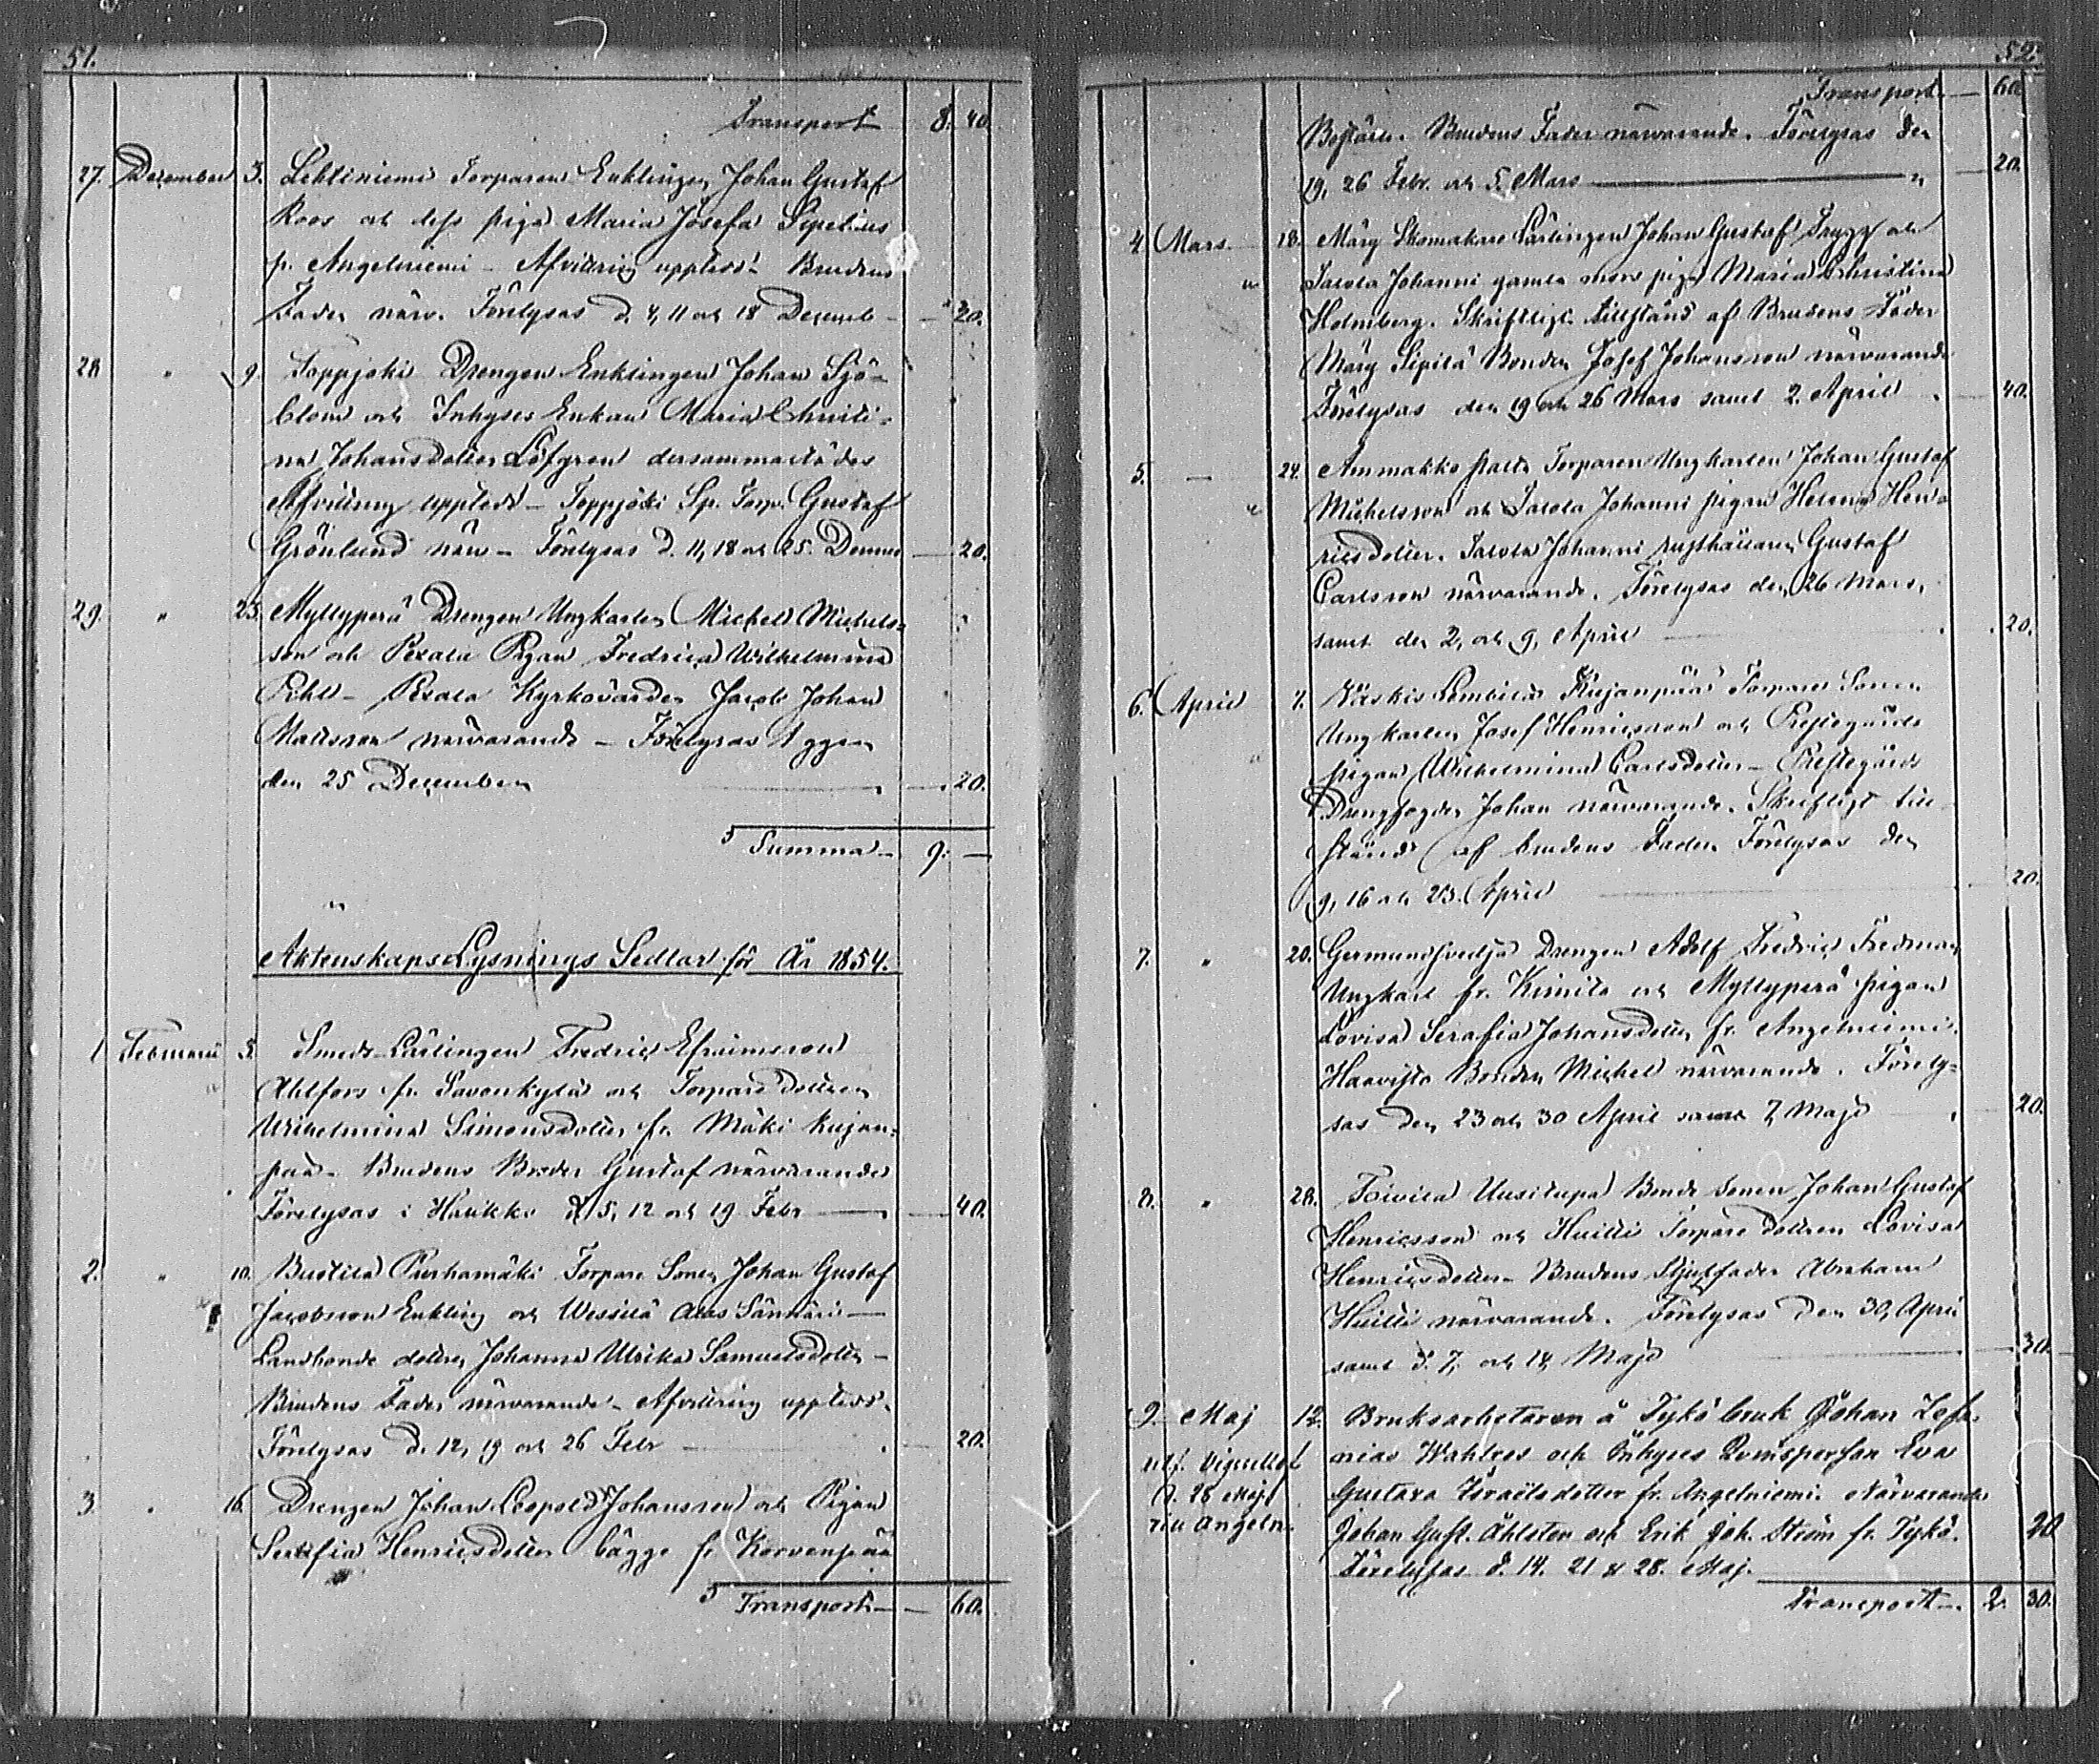 51.
Transport 8. 40.
27. December 3. Lehtiniemi Torparen Enklingen Johan Gustaf
Roos och dess piga Maria Josefa Sipelius
fr. Angelniemi - Afvittring upplöst - Brudens
Fader närv. Förelysas d. 4, 11 och 18 Decemb - 20.
28 " 9. Toppjoki Drengen Enklingen Johan Sjö-
blom och Inhyses Enkan Maria Christi-
na Johansdotter Löfgren dersammastädes
Afvittring upplöst - Toppjoki Torp. Gustaf
Grönlund närv - Förelysas d. 11, 18 och 25. Decemb - 20.
29. " 23. Myllyperä Drengen Ungkarlen Michel Michels-
son och Pexala Pigan Fredrica Wilhelmina
Pihl - Pexala Kyrkovärden Jacob Johan
Mattsson närvarande - Förelysas 1 ggn
den 25 December 20.
Summa 9. —
Äktenskaps Lysnings Sedlar för År 1854.
1 Februari 5. Smeds Lärlingen Fredric Efraimsson
Ahlfors fr. Savonkylä och Torpare dottren
Wilhelmina Simonsdotter fr. Mäki Kujan-
pää - Brudens Broder Gustaf närvarande
Förelysas i Haukko d. 5, 12 och 19 Febr — 40.
2. " 10. Bustila Purhamäki Torpare Sonen Johan Gustaf
Jacobsson Enkling och Wessilä Sännäri —
Landbonde dottren Johanna Ulrika Samuelsdotter -
Brudens Fader närvarande - Afvittring upplöst.
Förelysas d. 12, 19 och 26 Febr — 20.
3. " 16. Drengen Johan Leopold Johansson och Pigan
Serafia Henricsdotter bägge fr Korvenpää
Transport — 60.
52.
Transport — 60.
Boställe. Brudens Fader närvarande. Förelysas den
19, 26 Febr. och 5. Mars — 20.
4. Mars 18. Märy Skomakare Lärlingen Johan Gustaf Trygg och
Jacola Johanni gamla mors piga Maria Christina
Holmberg. Skriftligt tillstånd af Brudens Fader
Märy Sipilä Bonden Josef Johansson närvarande
Förelysas den 19 och 26 Mars samt 2. April 40.
5. — 24. Ammakko Torparen Ungkarlen Johan Gustaf
Michelsson och Jacola Johanni pigan Helena Hen-
ricsdotter. Jacola Johanni Gustaf
Carlsson närvarande. Förelysas den 26 Mars,
samt den 2, och 9, April 20.
6. April 7. Näskis Lembilä Kujanpää Torpare Sonen
Ungkarlen Josef Henricsson och Prestegårds
pigan Wilhelmina Carlsdotter - Prestegårds
Drengfogden Johan närvarande. Skriftligt till-
stånd af brudens Fader. Förelysas den
9, 16 och 23. April 20.
7. " 20. Germundsvedja Drengen Adolf Fredric Fredman
Ungkarl fr. Kimito och Myllyperä pigan
Lovisa Serafia Johansdotter fr. Angelniemi.
Haavisto Bonden Michel närvarande. Förely-
sas den 23 och 30 April samt 7, Maji 20.
8. " 28. Toivila Uusitupa Bonde sonen Johan Gustaf
Henricsson och Huitti Torpare dottren Lovisa
Henricsdotter - Brudens Stjuffader Abraham
Huitti närvarande. Förelysas den 30, April
samt d. 7, och 14 Maji 30.
9. Maj 12. Bruksarbetaren å Tykö bruk Johan Zefa-
nias Wahlros och Inhyses Qvinspersson Eva
Gustava Israelsdotter fr. Angelniemi. Närvarande
Johan Gust. Ahlsten och Erik Joh. Ström fr. Tykö. 20
Förelysas d. 14. 21 & 28. Maj.
d. 28 Maj
till Angeln.
Transport 2. 30.